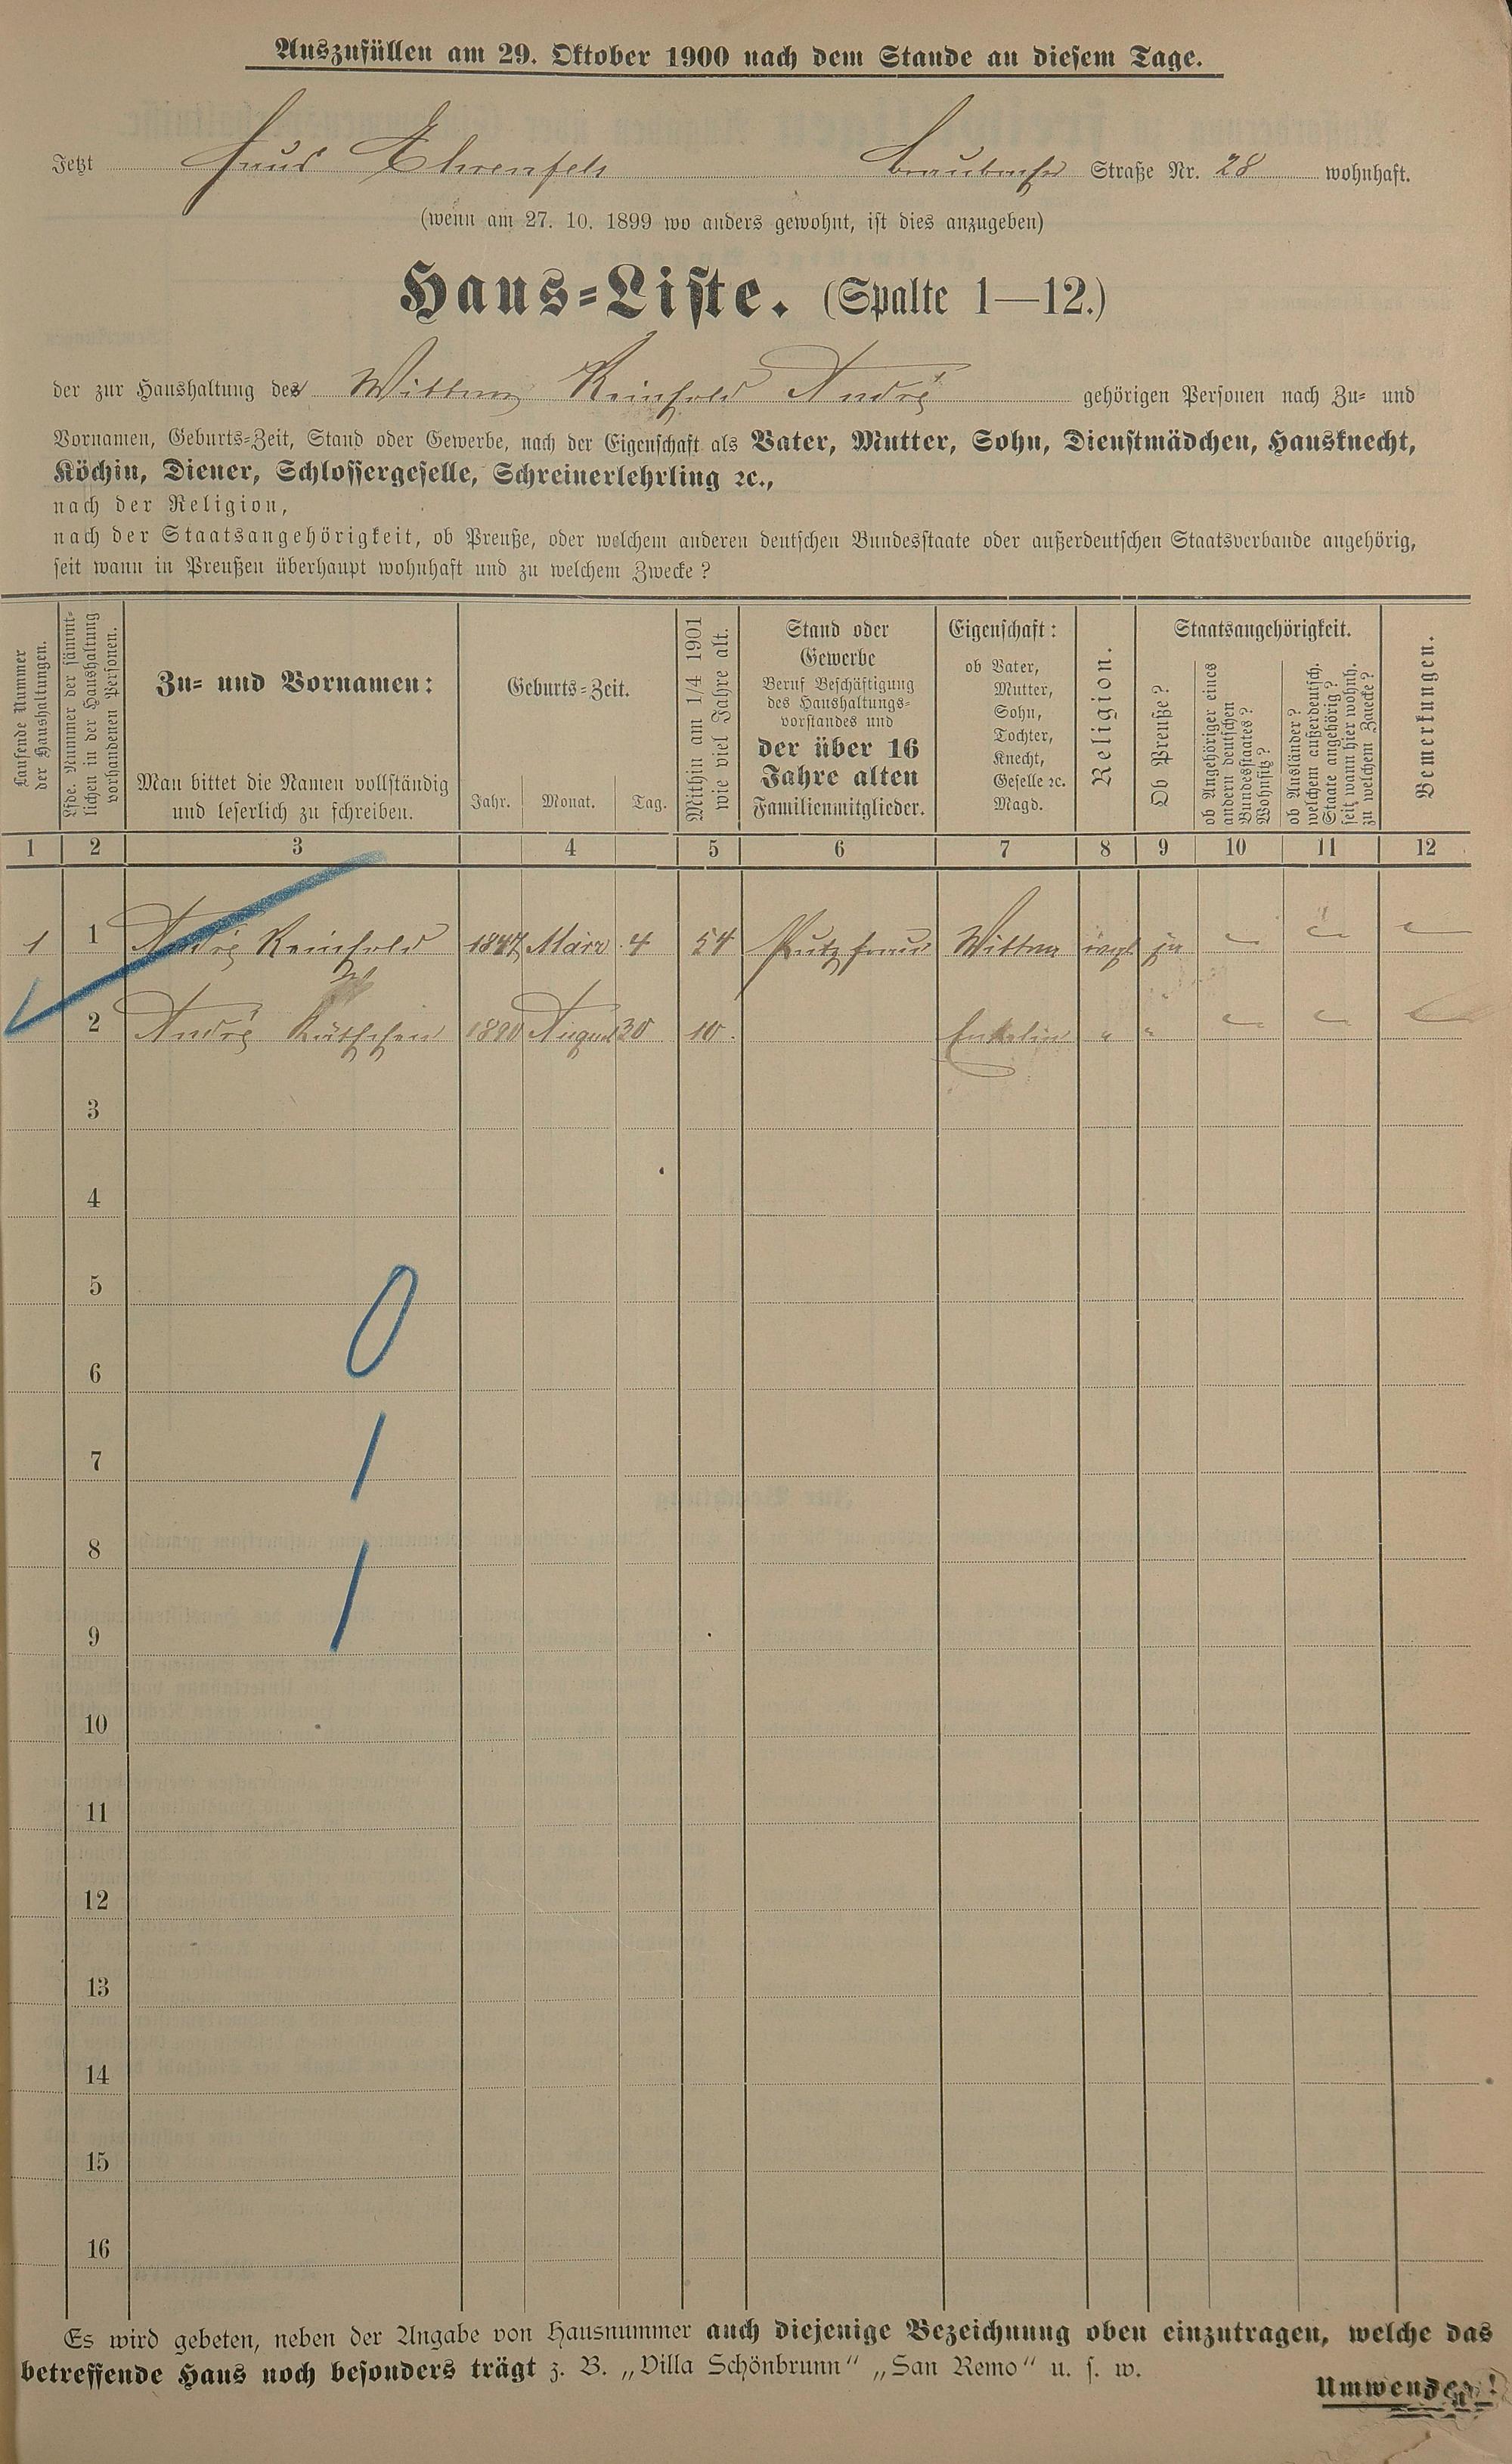 Auszufüllen am 29. Oktober 1900 nach dem Stande an diesem Tage.
Jetzt Haus Ehrenfels Braubacher Straße Nr. 28 wohnhaft.
(wenn am 27. 10. 1899 wo anders gewohnt, ist dies anzugeben)
Haus-Liste. (Spalte 1—12.)
der zur Haushaltung des Wittwe Reinhold André gehörigen Personen nach Zu- und
Vornamen, Geburts-Zeit, Stand oder Gewerbe, nach der Eigenschaft als Vater, Mutter, Sohn, Dienstmädchen, Hausknecht,
Köchin, Diener, Schlossergeselle, Schreinerlehrling ꝛc.,
nach der Religion,
nach der Staatsangehörigkeit, ob Preuße, oder welchem anderen deutschen Bundesstaate oder außerdeutschen Staatsverbande angehörig,
seit wann in Preußen überhaupt wohnhaft und zu welchem Zwecke?
Laufende Nummer
der Haushaltungen.
Lfde. Nummer der sämmt-
lichen in der Haushaltung
vorhandenen Personen.
Zu- und Vornamen:
Man bittet die Namen vollständig
und leserlich zu schreiben.
Geburts-Zeit.
Jahr. Monat. Tag.
Mithin am 1/4 1901
wie viel Jahre alt.
Stand oder
Gewerbe
Beruf Beschäftigung
des Haushaltungs-
vorstandes und
der über 16
Jahre alten
Familienmitglieder.
Eigenschaft:
ob Vater,
Mutter,
Sohn,
Tochter,
Knecht,
Geselle ꝛc.
Magd.
Religion.
Staatsangehörigkeit.
Ob Preuße?
ob Angehöriger eines
andern deutschen
Bundesstaates?
Wohnsitz?
ob Ausländer?
welchem außerdeutsch.
Staate angehörig?
seit wann hier wohnh.
zu welchem Zwecke?
Bemerkungen.
1 2 3 4 5 6 7 8 9 10 11 12
1 1 André Reinhold 1847 März 4 54 Putzfrau Wittwe evgl ja
2 André Käthchen 1890 August 30 10. Enkelin " "
3
4
5
0
6
7
8
9
10
11
12
13
14
15
16
Es wird gebeten, neben der Angabe von Hausnummer auch diejenige Bezeichnung oben einzutragen, welche das
betreffende Haus noch besonders trägt z. B. „Villa Schönbrunn“ „San Remo“ u. s. w.
Umwenden!